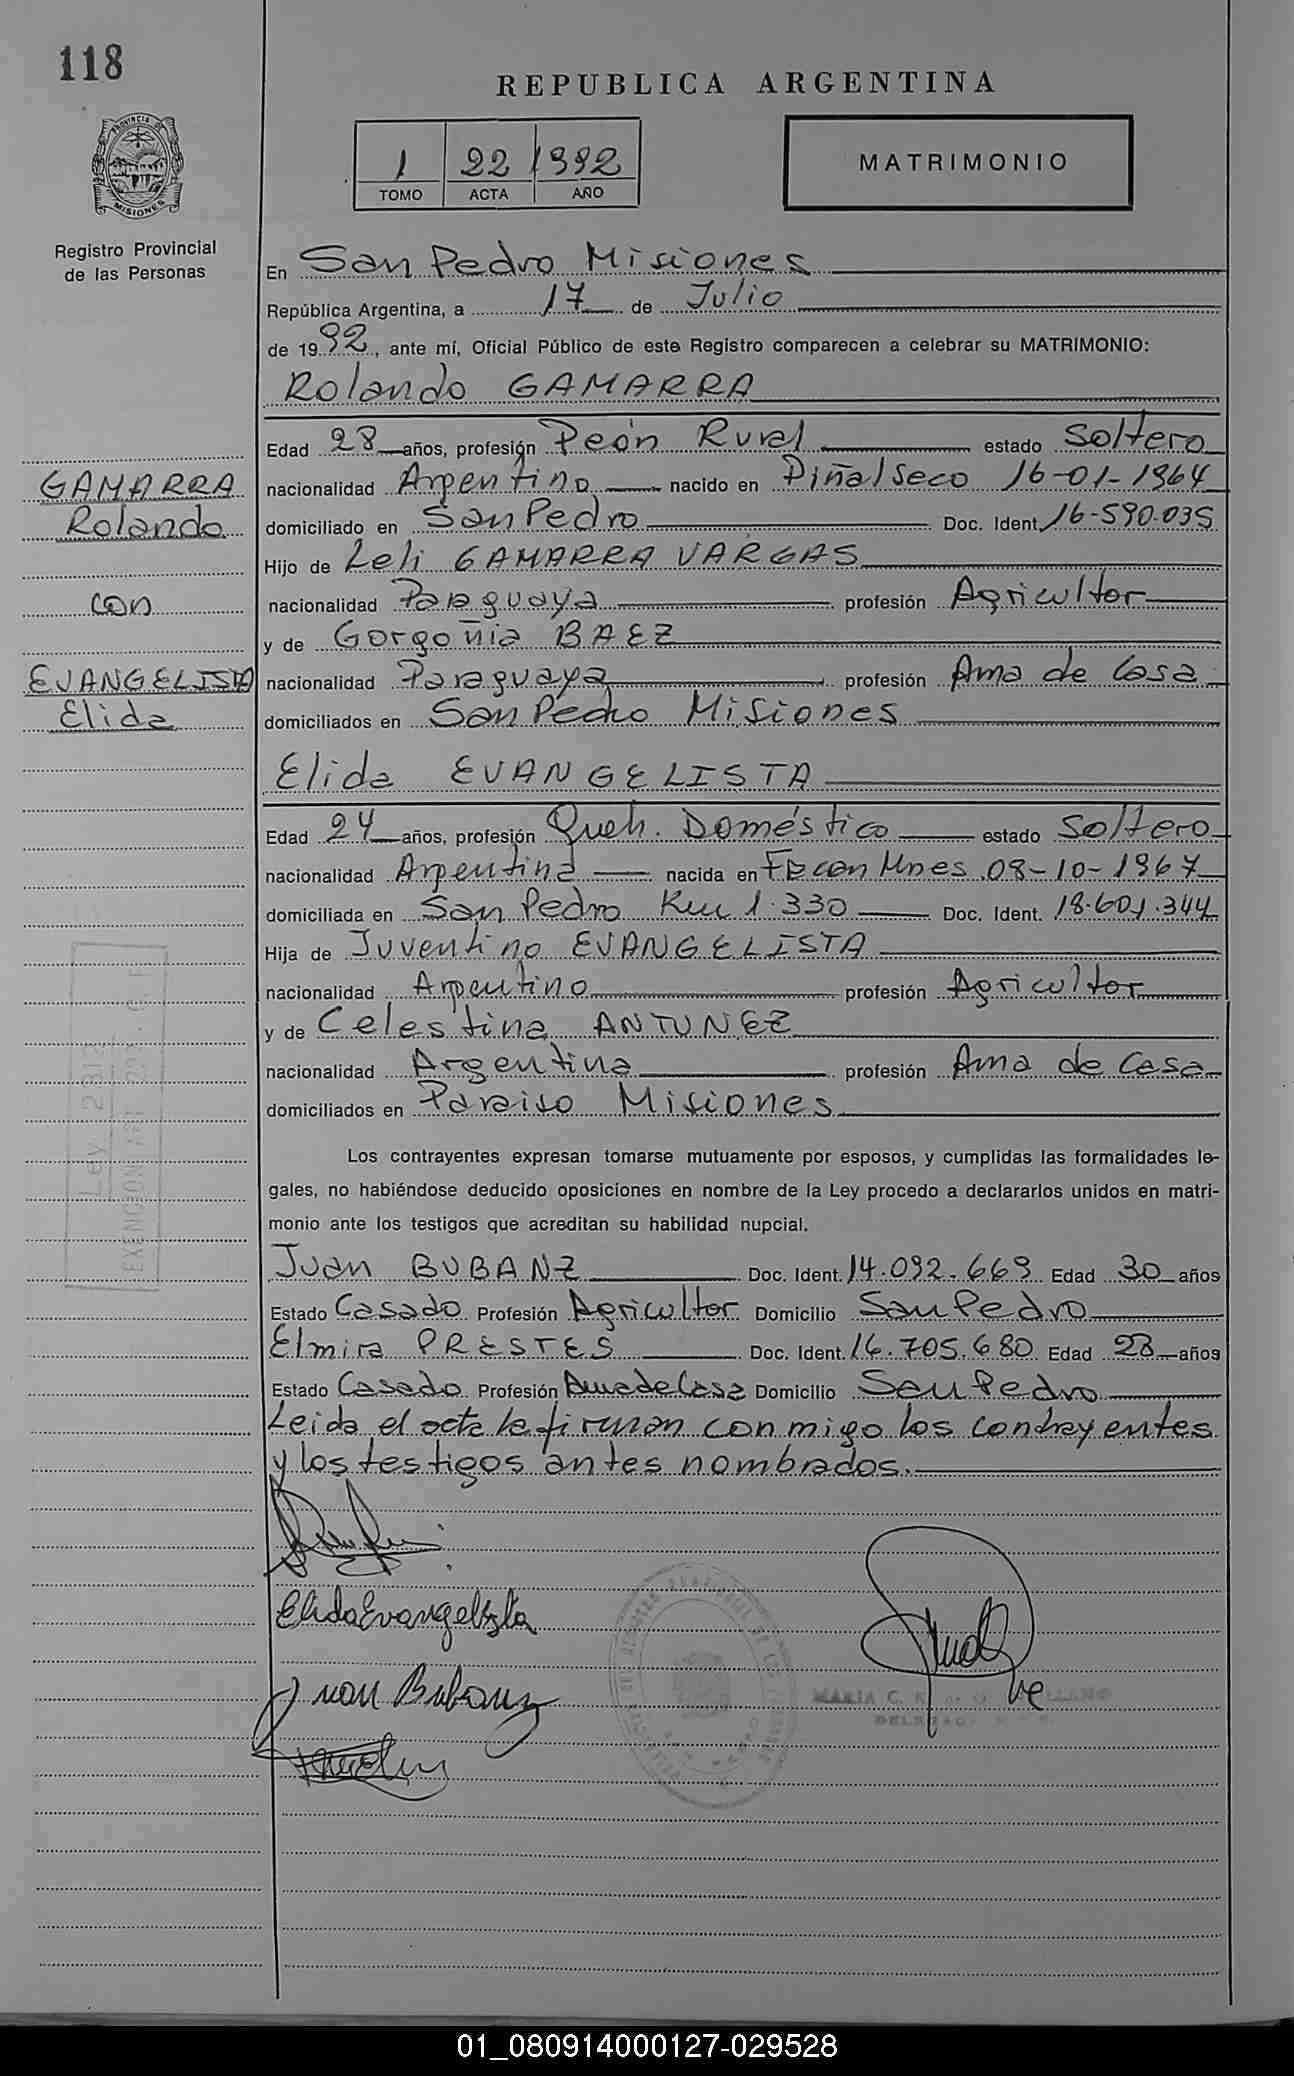 118
REPUBLICA ARGENTINA
1 22 1992
TOMO ACTA AÑO
MATRIMONIO
PROVINCIA DE
MISIONES
Registro Provincial
de las Personas
En San Pedro Misiones
República Argentina, a 17 de Julio
de 1992, ante mí, Oficial Público de este Registro comparecen a celebrar su MATRIMONIO:
Rolando GAMARRA
Edad 28 años, profesión Peón Rural estado Soltero
GAMARRA
nacionalidad Argentino nacido en Piñalseco 16-01-1964
Rolando
domiciliado en San Pedro Doc. Ident. 16-590.035
Hijo de Leli GAMARRA VARGAS
con
nacionalidad Paraguaya profesión Agricultor
y de Gorgoñia BAEZ
EVANGELISTA
nacionalidad Paraguaya profesión Ama de Casa
Elida
domiciliados en San Pedro Misiones
Elida EVANGELISTA
Edad 24 años, profesión Queh. Doméstico estado Soltero
nacionalidad Argentina nacida en Mnes 08-10-1967
domiciliada en San Pedro Km 1.330 Doc. Ident. 18.601.344
Hija de Juventino EVANGELISTA
nacionalidad Argentino profesión Agricultor
y de Celestina ANTUNEZ
nacionalidad Argentina profesión Ama de Casa
domiciliados en Paraiso Misiones
Ley 2812
Los contrayentes expresan tomarse mutuamente por esposos, y cumplidas las formalidades le-
gales, no habiéndose deducido oposiciones en nombre de la Ley procedo a declararlos unidos en matri-
monio ante los testigos que acreditan su habilidad nupcial.
Juan BUBANZ Doc. Ident. 14.092.669 Edad 30 años
Estado Casado Profesión Agricultor Domicilio San Pedro
Elmira PRESTES Doc. Ident. 16.705.680 Edad 28 años
Estado Casado Profesión Ama de Casa Domicilio San Pedro
Leida el acta la firman conmigo los contrayentes
y los testigos antes nombrados.
Elida Evangelista
Juan Bubanz
MARIA C.
01_080914000127-029528